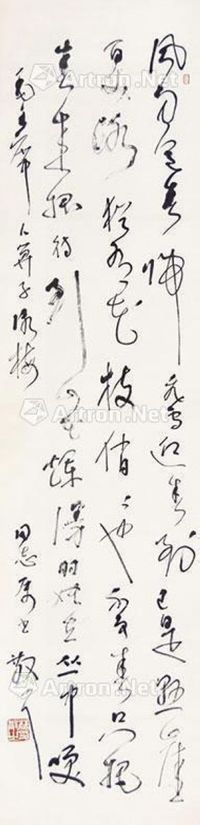 风雨送春归飞雪迎春到已是悬崖
百丈冰犹有花枝俏俏也不争春只把
春来报待到山花烂漫时她在丛中笑
毛主席卜算子咏梅
同志属书 散之
Artron.Net
Artron.Net
Artron.Net
Artron.Net